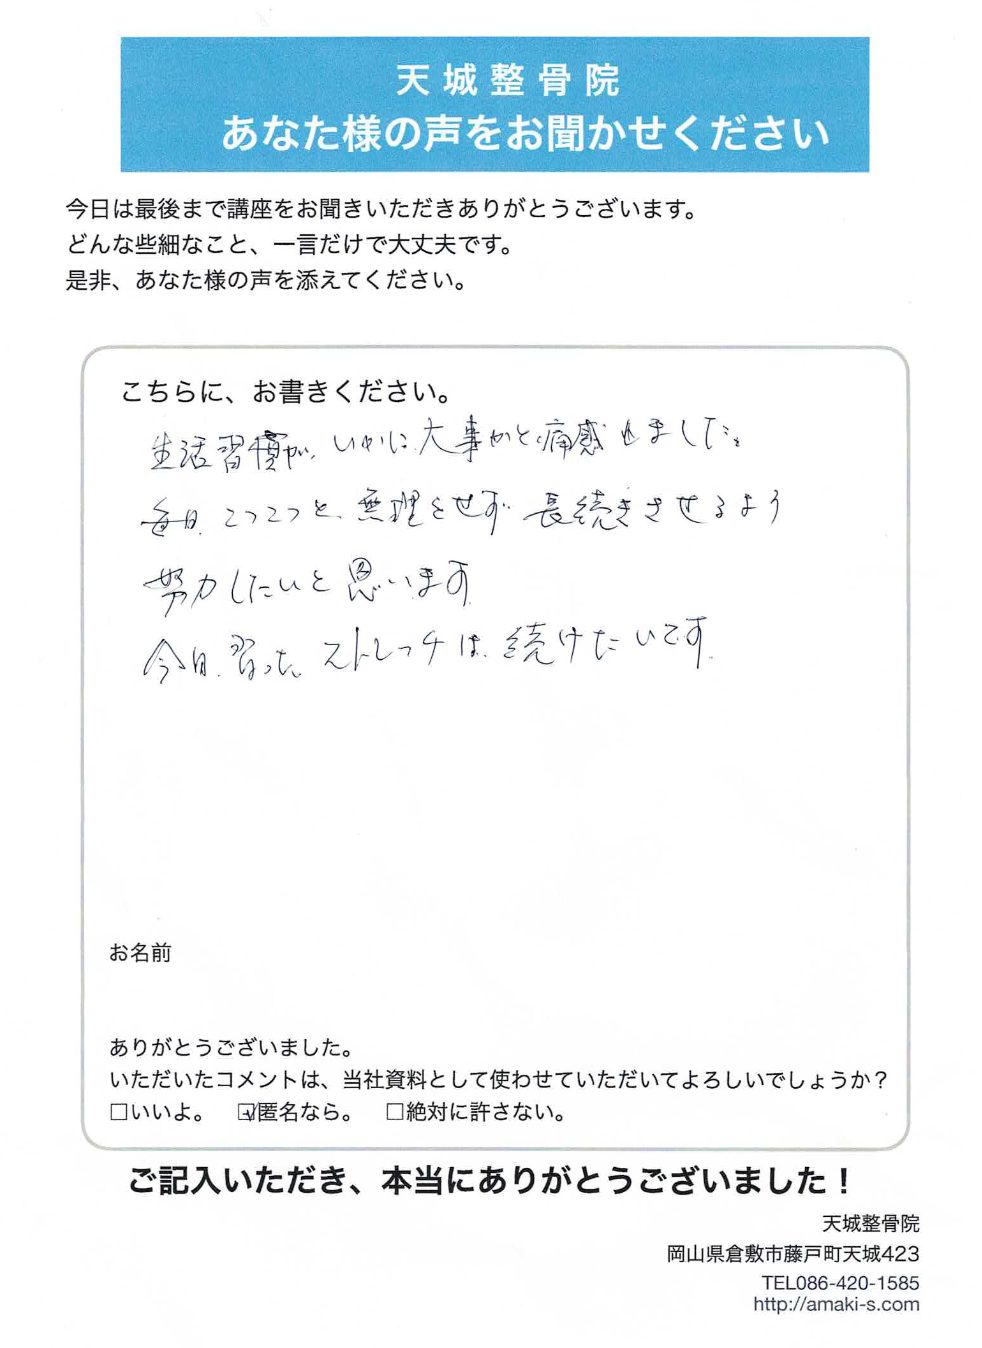 天城整骨院
あなた様の声をお聞かせください
今日は最後まで講座をお聞きいただきありがとうございます。
どんな些細なこと、一言だけで大丈夫です。
是非、あなた様の声を添えてください。
こちらに、お書きください。
生活習慣が、いかに大事かと痛感しました。
毎日、こつこつと、無理をせず長続きさせるよう
努力したいと思います
今日、習った、ストレッチは、続けたいです。
お名前
ありがとうございました。
いただいたコメントは、当社資料として使わせていただいてよろしいでしょうか？
□いいよ。 ☑匿名なら。 □絶対に許さない。
ご記入いただき、本当にありがとうございました！
天城整骨院
岡山県倉敷市藤戸町天城423
TEL086-420-1585
http://amaki-s.com